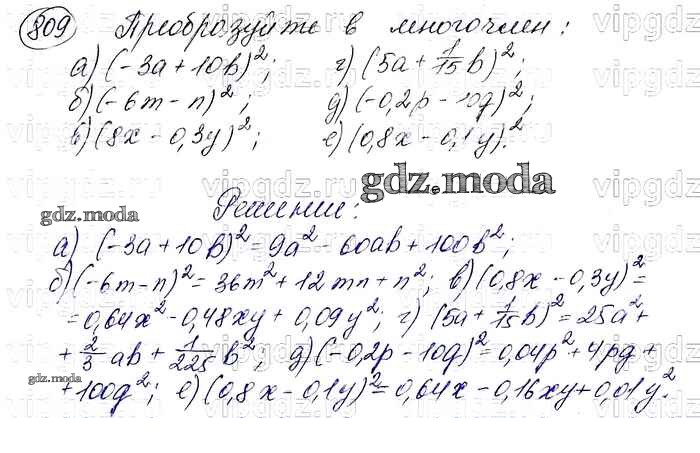 809 Преобразуйте в многочлен:
а) (-3a + 10b)²; г) (5a + 1/15 b)²;
б) (-6m - n)²; д) (-0,2p - 10q)²;
в) (8x - 0,3y)²; е) (0,8x - 0,1y)².
gdz.moda
Решение:
gdz.moda
а) (-3a + 10b)² = 9a² - 60ab + 100b²;
б) (-6m - n)² = 36m² + 12mn + n²; в) (0,8x - 0,3y)² =
= 0,64x² - 0,48xy + 0,09y²; г) (5a + 1/15 b)² = 25a² +
+ 2/3 ab + 1/225 b²; д) (-0,2p - 10q)² = 0,04p² + 4pq +
gdz.moda
+ 100q²; е) (0,8x - 0,1y)² = 0,64x - 0,16xy + 0,01y².
vipgdz.ru